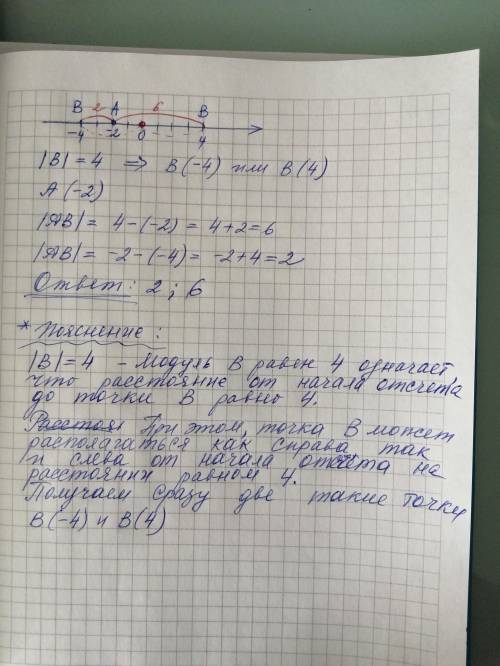 B 2 A 6 B
-4 -2 0 4
|B| = 4 ⇒ B(-4) или B(4)
A(-2)
|AB| = 4-(-2) = 4+2=6
|AB| = -2-(-4) = -2+4=2
Ответ: 2; 6
* Пояснение:
|B| = 4 - Модуль B равен 4 означает
что расстояние от начала отсчёта
до точки B равно 4.
При этом, точка B может
располагаться как справа так
и слева от начала отсчёта на
расстоянии равном 4.
Получаем сразу две такие точки
B(-4) и B(4)